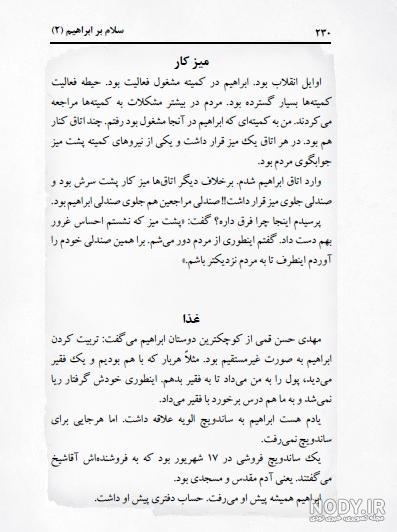 ۲۳۰ سلام بر ابراهیم (۲)
میز کار
اوایل انقلاب بود. ابراهیم در کمیته مشغول فعالیت بود. حیطه فعالیت
کمیته‌ها بسیار گسترده بود. مردم در بیشتر مشکلات به کمیته‌ها مراجعه
می‌کردند. من به کمیته‌ای که ابراهیم در آنجا مشغول بود رفتم. چند اتاق کنار
هم بود. در هر اتاق یك میز قرار داشت و یکی از نیروهای کمیته پشت میز
جوابگوی مردم بود.
وارد اتاق ابراهیم شدم. برخلاف دیگر اتاق‌ها میز کار پشت سرش بود و
صندلی جلوی میز قرار داشت!! صندلی مراجعین هم جلوی صندلی ابراهیم بود.
پرسیدم اینجا چرا فرق داره؟ گفت: «پشت میز که نشستم احساس غرور
بهم دست داد. گفتم اینطوری از مردم دور می‌شم. برا همین صندلی خودم را
آوردم اینطرف تا به مردم نزدیکتر باشم.»
غذا
مهدی حسن قمی از کوچکترین دوستان ابراهیم می‌گفت: تربیت کردن
ابراهیم به صورت غیرمستقیم بود. مثلاً هربار که با هم بودیم و یك فقیر
می‌دید، پول را به من می‌داد تا به فقیر بدهم. اینطوری خودش گرفتار ریا
نمی‌شد و به ما هم درس برخورد با فقیر می‌داد.
یادم هست ابراهیم به ساندویچ الویه علاقه داشت. اما هرجایی برای
ساندویچ نمی‌رفت.
یك ساندویچ فروشی در ۱۷ شهریور بود که به فروشنده‌اش آقاشیخ
می‌گفتند. یعنی آدم مقدس و مسجدی بود.
ابراهیم همیشه پیش او می‌رفت. حساب دفتری پیش او داشت.
NODY.IR